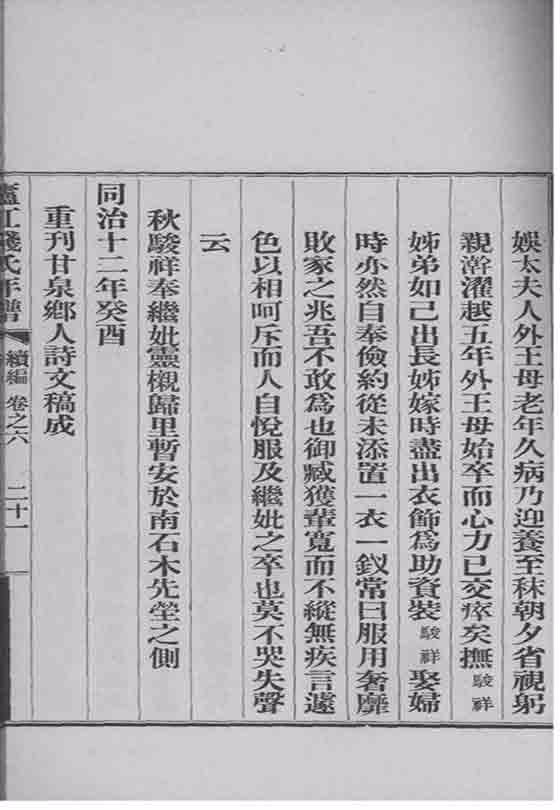 娛太夫人外王母老年久病乃迎養至秣朝夕省視躬
親澣濯越五年外王母始卒而心力已交瘁矣撫駿祥
姊弟如己出長姊嫁時盡出衣飾爲助資裝駿祥娶婦
時亦然自奉儉約從未添置一衣一釵常曰服用奢靡
敗家之兆吾不敢爲也御臧獲輩寬而不縱無疾言遽
色以相呵斥而人自悅服及繼妣之卒也莫不哭失聲
云
秋駿祥奉繼妣靈櫬歸里暫安於南石木先塋之側
同治十二年癸酉
重刊甘泉鄉人詩文稿成
廬江錢氏年譜 續編 卷之六 二十一